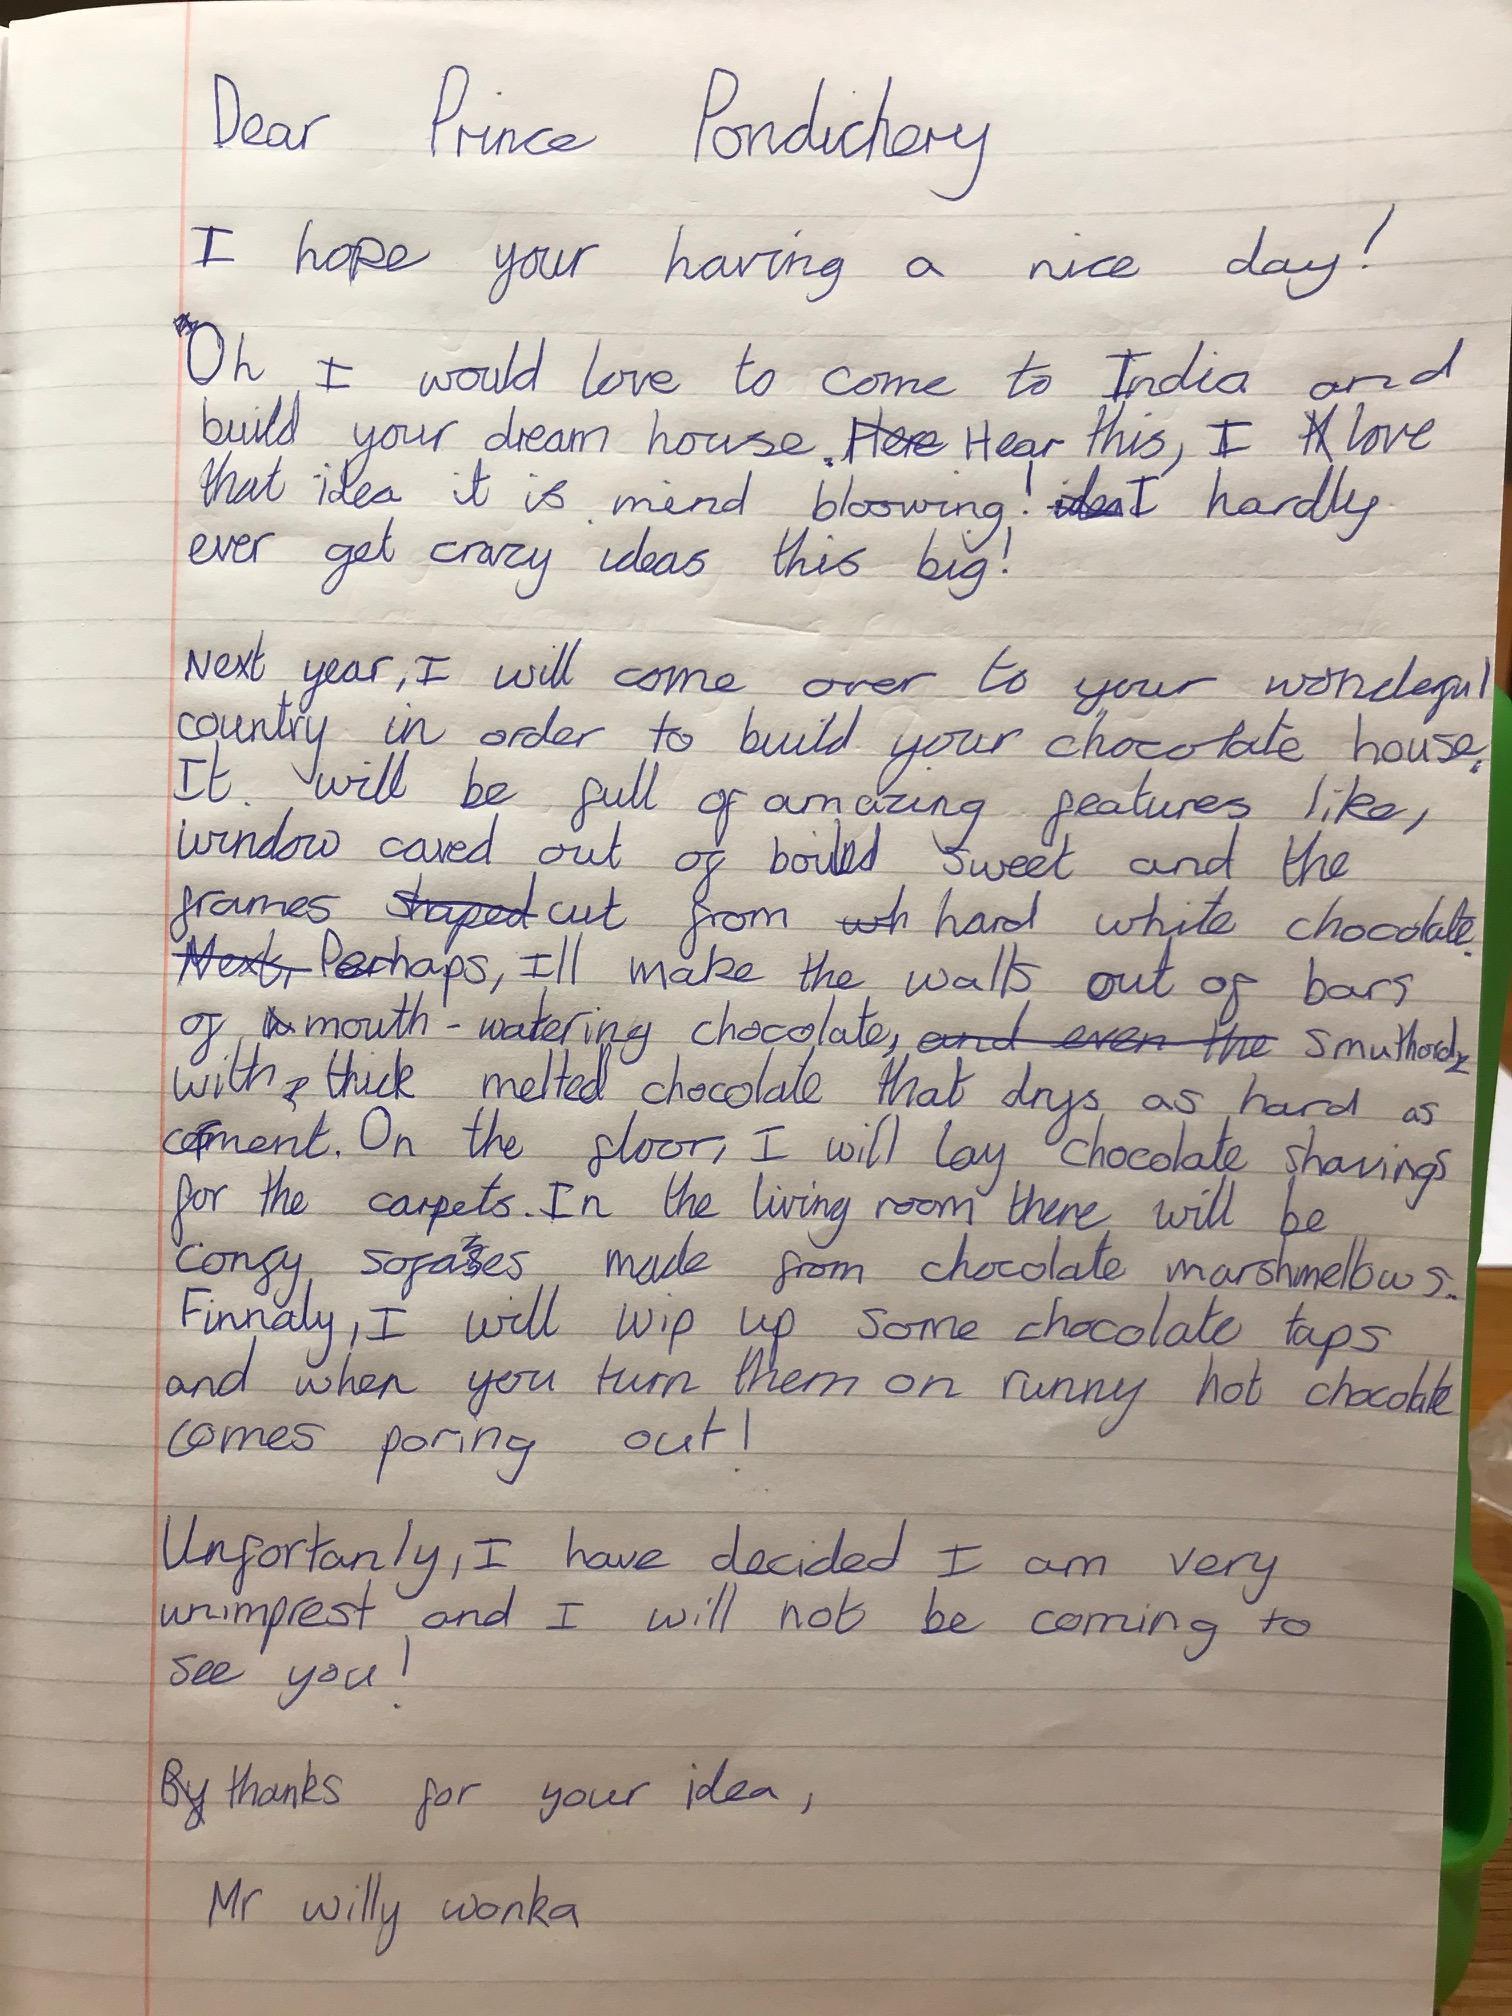 Dear Prince Pondichery
I hope your having a nice day!
Oh I would love to come to India and
build your dream house. Here Hear this, I love
that idea it is mind bloowing! idea I hardly
ever get crazy ideas this big!
Next year, I will come over to your wonderful
country in order to build your chocolate house.
It will be full of amazing features like,
window caved out of boiled sweet and the
frames shaped cut from wh hard white chocolate.
Next, Perhaps, I'll make the walls out of bars
of mouth-watering chocolate, and even the smuthord
with thick melted chocolate that drys as hard as
cement. On the floor, I will lay chocolate shavings
for the carpets. In the living room there will be
congy sofases made from chocolate marshmellows.
Finnaly, I will wip up some chocolate taps
and when you turn them on runny hot chocolate
comes poring out!
Unfortanly, I have decided I am very
unimprest and I will not be coming to
see you!
By thanks for your idea,
Mr willy wonka